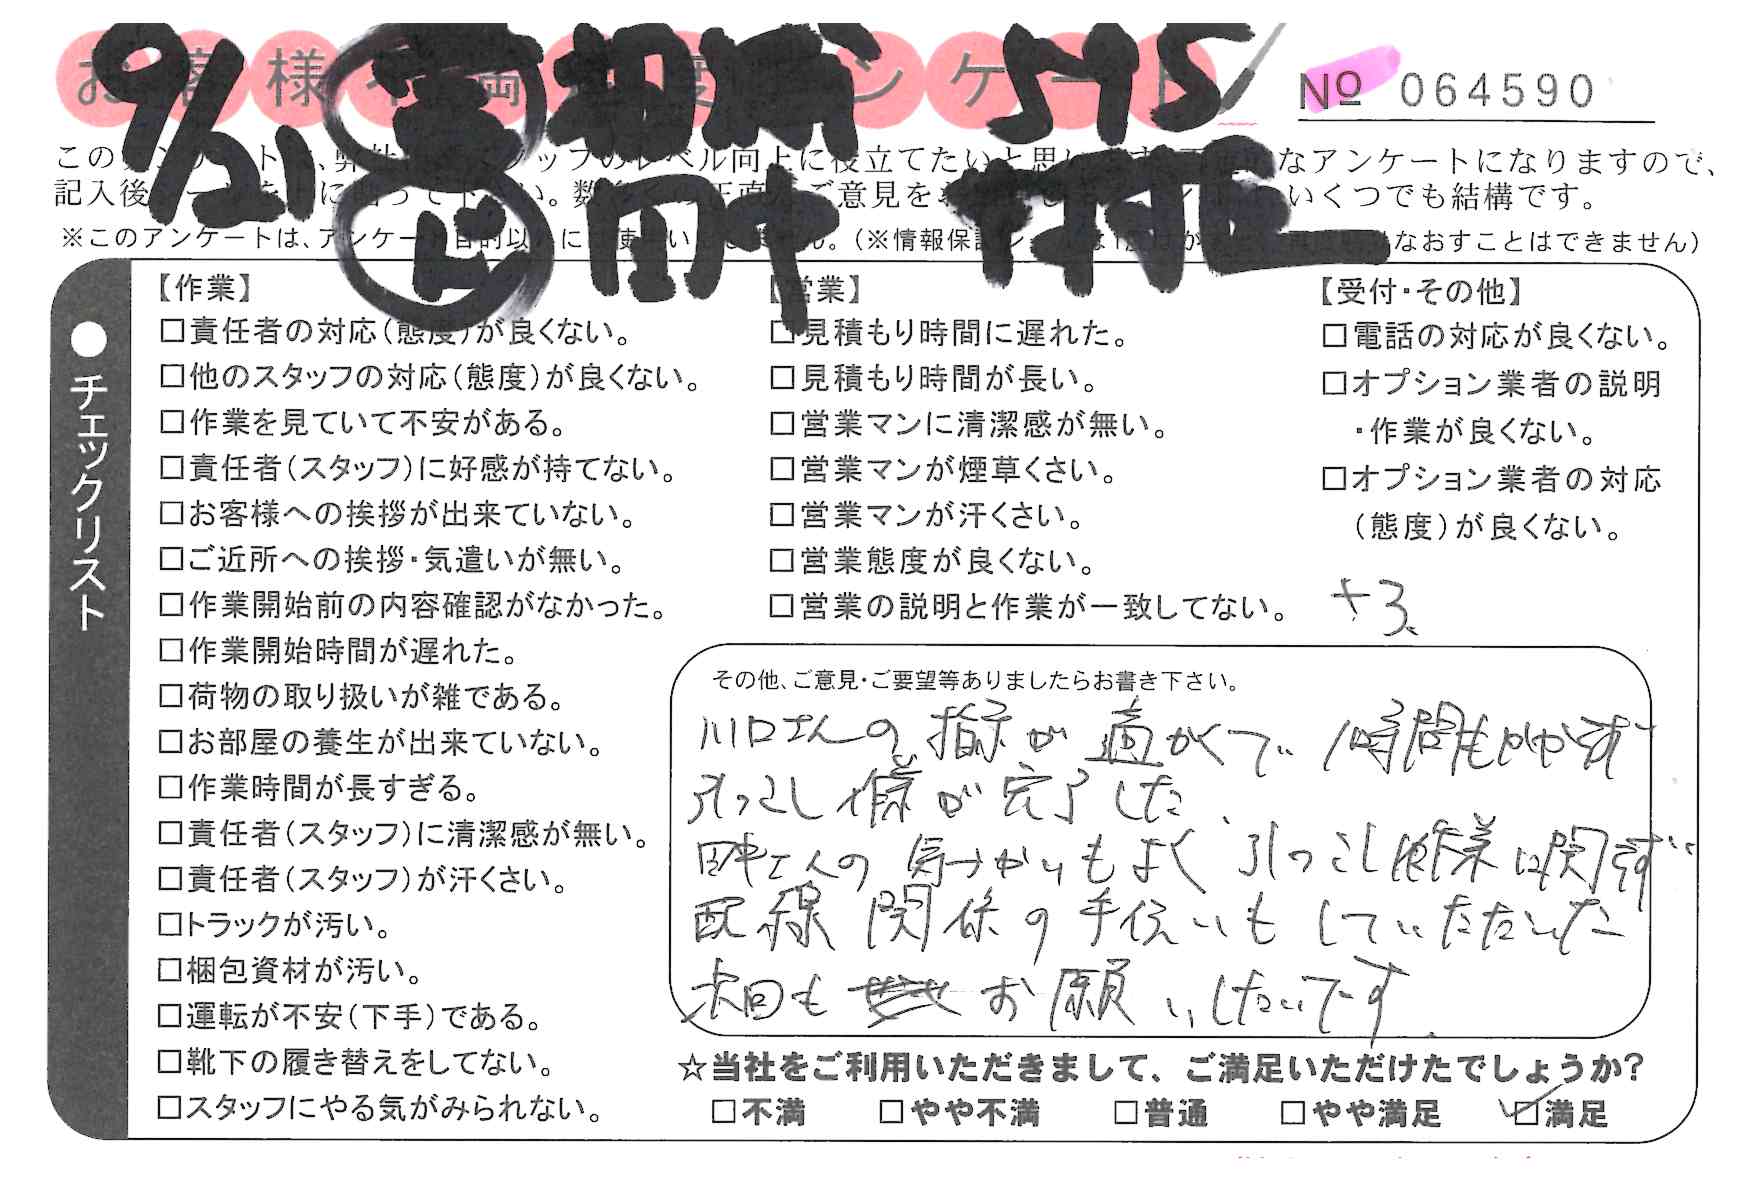 お客様不満度アンケート
№ 064590
9/21 相成 595
田中 村尾
このアンケートは、弊社スタッフのレベル向上に役立てたいと思いますなアンケートになりますので、
記入後に貼って下さい。数多くの正直なご意見をいくつでも結構です。
※このアンケートは、アンケート目的以外には使いません。(※情報保なおすことはできません)
●チェックリスト
【作業】
□責任者の対応(態度)が良くない。
□他のスタッフの対応(態度)が良くない。
□作業を見ていて不安がある。
□責任者(スタッフ)に好感が持てない。
□お客様への挨拶が出来ていない。
□ご近所への挨拶・気遣いが無い。
□作業開始前の内容確認がなかった。
□作業開始時間が遅れた。
□荷物の取り扱いが雑である。
□お部屋の養生が出来ていない。
□作業時間が長すぎる。
□責任者(スタッフ)に清潔感が無い。
□責任者(スタッフ)が汗くさい。
□トラックが汚い。
□梱包資材が汚い。
□運転が不安(下手)である。
□靴下の履き替えをしてない。
□スタッフにやる気がみられない。
【営業】
□見積もり時間に遅れた。
□見積もり時間が長い。
□営業マンに清潔感が無い。
□営業マンが煙草くさい。
□営業マンが汗くさい。
□営業態度が良くない。
□営業の説明と作業が一致してない。
【受付・その他】
□電話の対応が良くない。
□オプション業者の説明
・作業が良くない。
□オプション業者の対応
(態度)が良くない。
+3
その他、ご意見・ご要望等ありましたらお書き下さい。
川口さんの指示が適かくで 1時間もかからず
引っこし作業が完了した、
田中さんの気づかいもよく 引っこし作業に関せず
配線関係の手伝いもしていただいた
次回も お願いしたいです。
☆当社をご利用いただきまして、ご満足いただけたでしょうか?
□不満 □やや不満 □普通 □やや満足 ☑満足